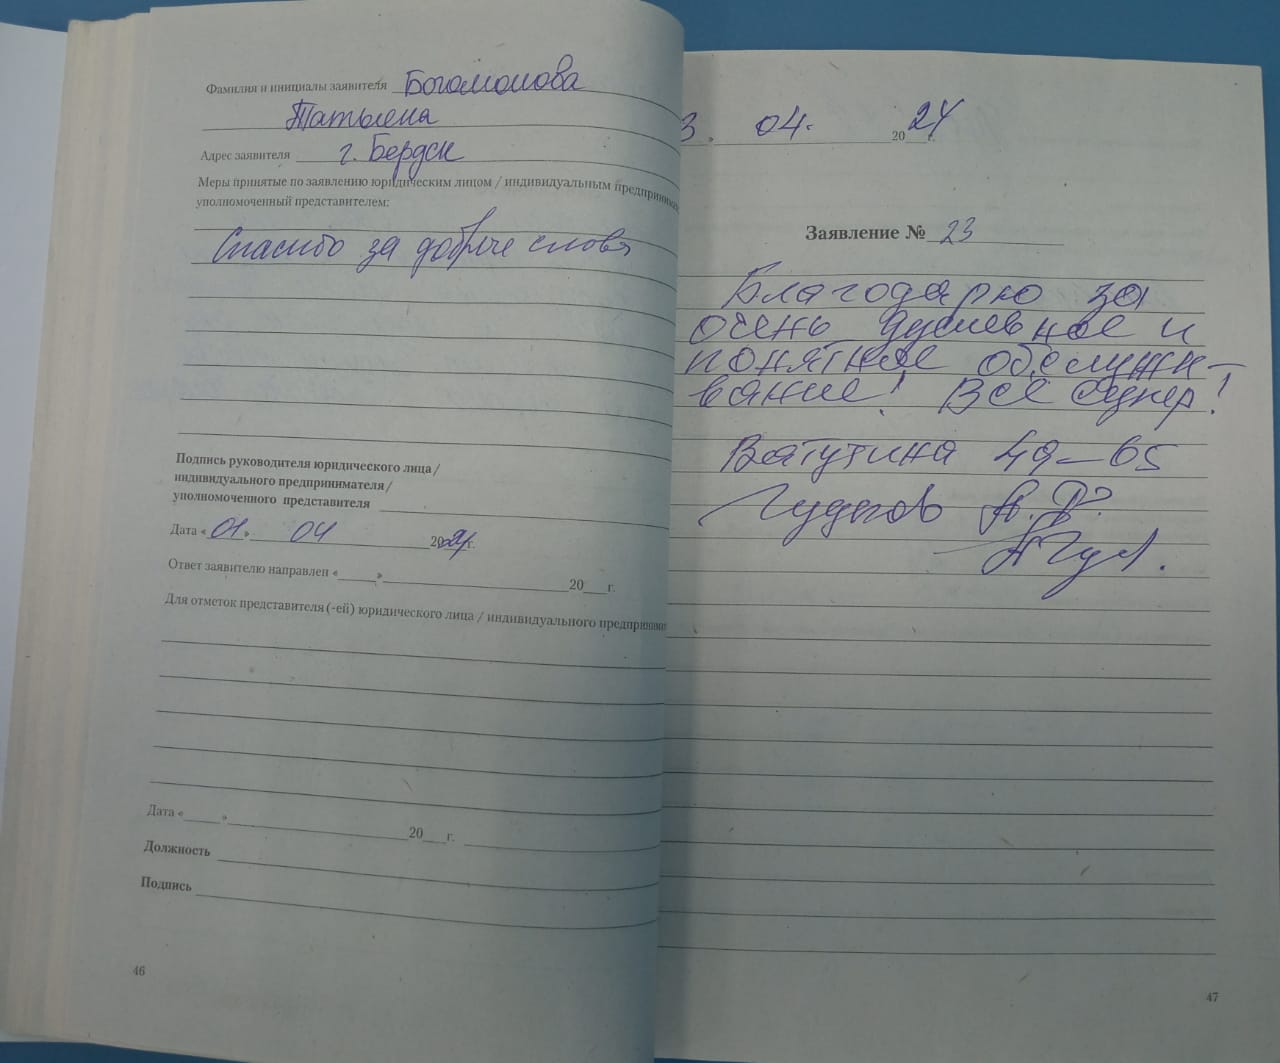 Фамилия и инициалы заявителя Богомолова
Татьяна
Адрес заявителя г. Бердск
Меры принятые по заявлению юридическим лицом / индивидуальным предпринима
уполномоченный представителем:
Спасибо за добрые слова
Подпись руководителя юридического лица/
индивидуального предпринимателя/
уполномоченного представителя
Дата «01» 04 2024г.
Ответ заявителю направлен «___» 20__г.
Для отметок представителя (-ей) юридического лица / индивидуального предпринима
Дата «___» 20__г.
Должность
Подпись
46
3» 04. 2024г.
Заявление № 23
Благодарю за
очень душевное и
понятное обслужи-
вание! Всё супер!
Ватутина 49-65
Гудков А.
47